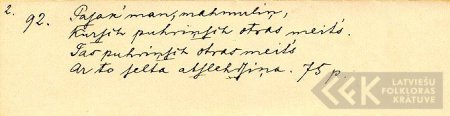 2. 92. Pasak' man, mahmuliņ,
Kursch puhriņsch otras meits.
Tas puhriņsch otras meits
Ar to selta atslehdsiņa. 75 p.
LATVIEŠU
FOLKLORAS
KRĀTUVE